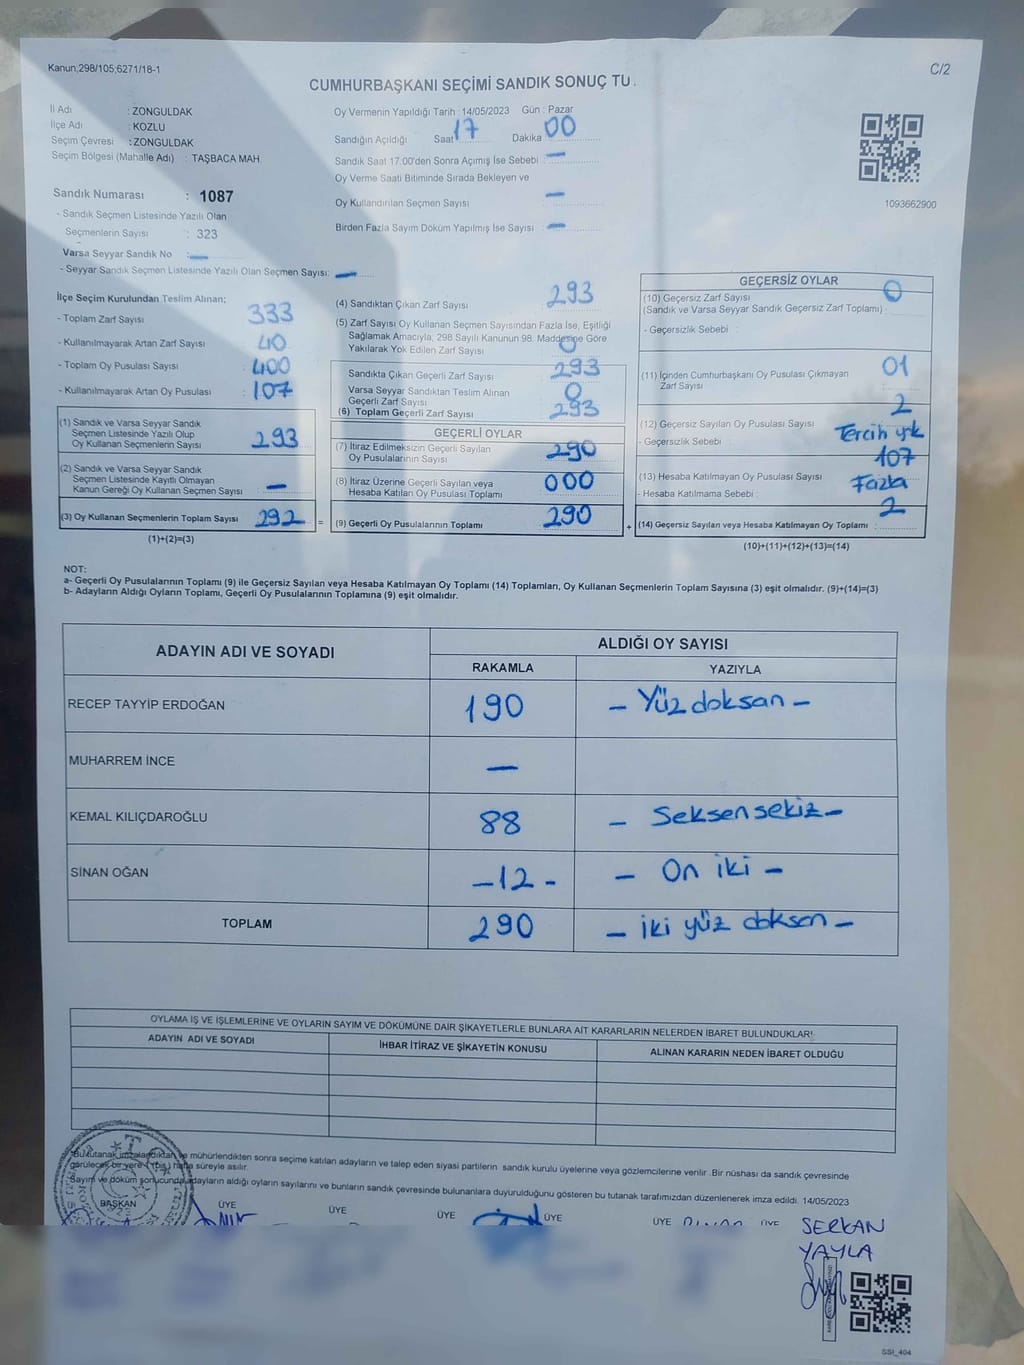 Kanun;298/105;6271/18-1
C/2
CUMHURBAŞKANI SEÇİMİ SANDIK SONUÇ TU
İl Adı : ZONGULDAK
İlçe Adı : KOZLU
Seçim Çevresi : ZONGULDAK
Seçim Bölgesi (Mahalle Adı) : TAŞBACA MAH.
Oy Vermenin Yapıldığı Tarih : 14/05/2023 Gün : Pazar
Sandığın Açıldığı Saat 17 Dakika 00
Sandık Saat 17.00'den Sonra Açımış İse Sebebi : —
Oy Verme Saati Bitiminde Sırada Bekleyen ve
Oy Kullandırılan Seçmen Sayısı : —
Birden Fazla Sayım Döküm Yapılmış İse Sayısı : —
1093662900
Sandık Numarası : 1087
- Sandık Seçmen Listesinde Yazılı Olan
Seçmenlerin Sayısı : 323
Varsa Seyyar Sandık No : —
- Seyyar Sandık Seçmen Listesinde Yazılı Olan Seçmen Sayısı: —
İlçe Seçim Kurulundan Teslim Alınan;
- Toplam Zarf Sayısı : 333
- Kullanılmayarak Artan Zarf Sayısı : 40
- Toplam Oy Pusulası Sayısı : 400
- Kullanılmayarak Artan Oy Pusulası : 107
(1) Sandık ve Varsa Seyyar Sandık
Seçmen Listesinde Yazılı Olup
Oy Kullanan Seçmenlerin Sayısı : 293
(2) Sandık ve Varsa Seyyar Sandık
Seçmen Listesinde Kayıtlı Olmayan
Kanun Gereği Oy Kullanan Seçmen Sayısı : —
(3) Oy Kullanan Seçmenlerin Toplam Sayısı 292 =
(1)+(2)=(3)
(4) Sandıktan Çıkan Zarf Sayısı 293
(5) Zarf Sayısı Oy Kullanan Seçmen Sayısından Fazla İse, Eşitliği
Sağlamak Amacıyla, 298 Sayılı Kanunun 98. Maddesine Göre
Yakılarak Yok Edilen Zarf Sayısı 0
Sandıkta Çıkan Geçerli Zarf Sayısı : 293
Varsa Seyyar Sandıktan Teslim Alınan
Geçerli Zarf Sayısı 0
(6) Toplam Geçerli Zarf Sayısı 293
GEÇERLİ OYLAR
(7) İtiraz Edilmeksizin Geçerli Sayılan
Oy Pusulalarının Sayısı 290
(8) İtiraz Üzerine Geçerli Sayılan veya
Hesaba Katılan Oy Pusulası Toplamı 000
(9) Geçerli Oy Pusulalarının Toplamı 290 +
GEÇERSİZ OYLAR
(10) Geçersiz Zarf Sayısı 0
(Sandık ve Varsa Seyyar Sandık Geçersiz Zarf Toplamı)
- Geçersizlik Sebebi :
(11) İçinden Cumhurbaşkanı Oy Pusulası Çıkmayan 01
Zarf Sayısı
(12) Geçersiz Sayılan Oy Pusulası Sayısı 2
- Geçersizlik Sebebi : Tercih yok
(13) Hesaba Katılmayan Oy Pusulası Sayısı 107
- Hesaba Katılmama Sebebi : Fazla
(14) Geçersiz Sayılan veya Hesaba Katılmayan Oy Toplamı : 2
(10)+(11)+(12)+(13)=(14)
NOT:
a- Geçerli Oy Pusulalarının Toplamı (9) ile Geçersiz Sayılan veya Hesaba Katılmayan Oy Toplamı (14) Toplamları, Oy Kullanan Seçmenlerin Toplam Sayısına (3) eşit olmalıdır. (9)+(14)=(3)
b- Adayların Aldığı Oyların Toplamı, Geçerli Oy Pusulalarının Toplamına (9) eşit olmalıdır.
ADAYIN ADI VE SOYADI ALDIĞI OY SAYISI
RAKAMLA YAZIYLA
RECEP TAYYİP ERDOĞAN 190 – Yüz doksan –
MUHARREM İNCE —
KEMAL KILIÇDAROĞLU 88 – Seksen sekiz –
SİNAN OĞAN –12 – – On iki –
TOPLAM 290 – iki yüz doksan –
OYLAMA İŞ VE İŞLEMLERİNE VE OYLARIN SAYIM VE DÖKÜMÜNE DAİR ŞİKAYETLERLE BUNLARA AİT KARARLARIN NELERDEN İBARET BULUNDUKLARI
ADAYIN ADI VE SOYADI İHBAR İTİRAZ VE ŞİKAYETİN KONUSU ALINAN KARARIN NEDEN İBARET OLDUĞU
Bu tutanak imzalandıktan ve mühürlendikten sonra seçime katılan adayların ve talep eden siyasi partilerin sandık kurulu üyelerine veya gözlemcilerine verilir. Bir nüshası da sandık çevresinde
görülecek bir yere 1 (bir) hafta süreyle asılır.
Sayım ve döküm sonucunda adayların aldığı oyların sayılarını ve bunların sandık çevresinde bulunanlara duyurulduğunu gösteren bu tutanak tarafımızdan düzenlenerek imza edildi. 14/05/2023
BAŞKAN ÜYE ÜYE ÜYE ÜYE ÜYE ÜYE
SERKAN
YAYLA
SSI_404